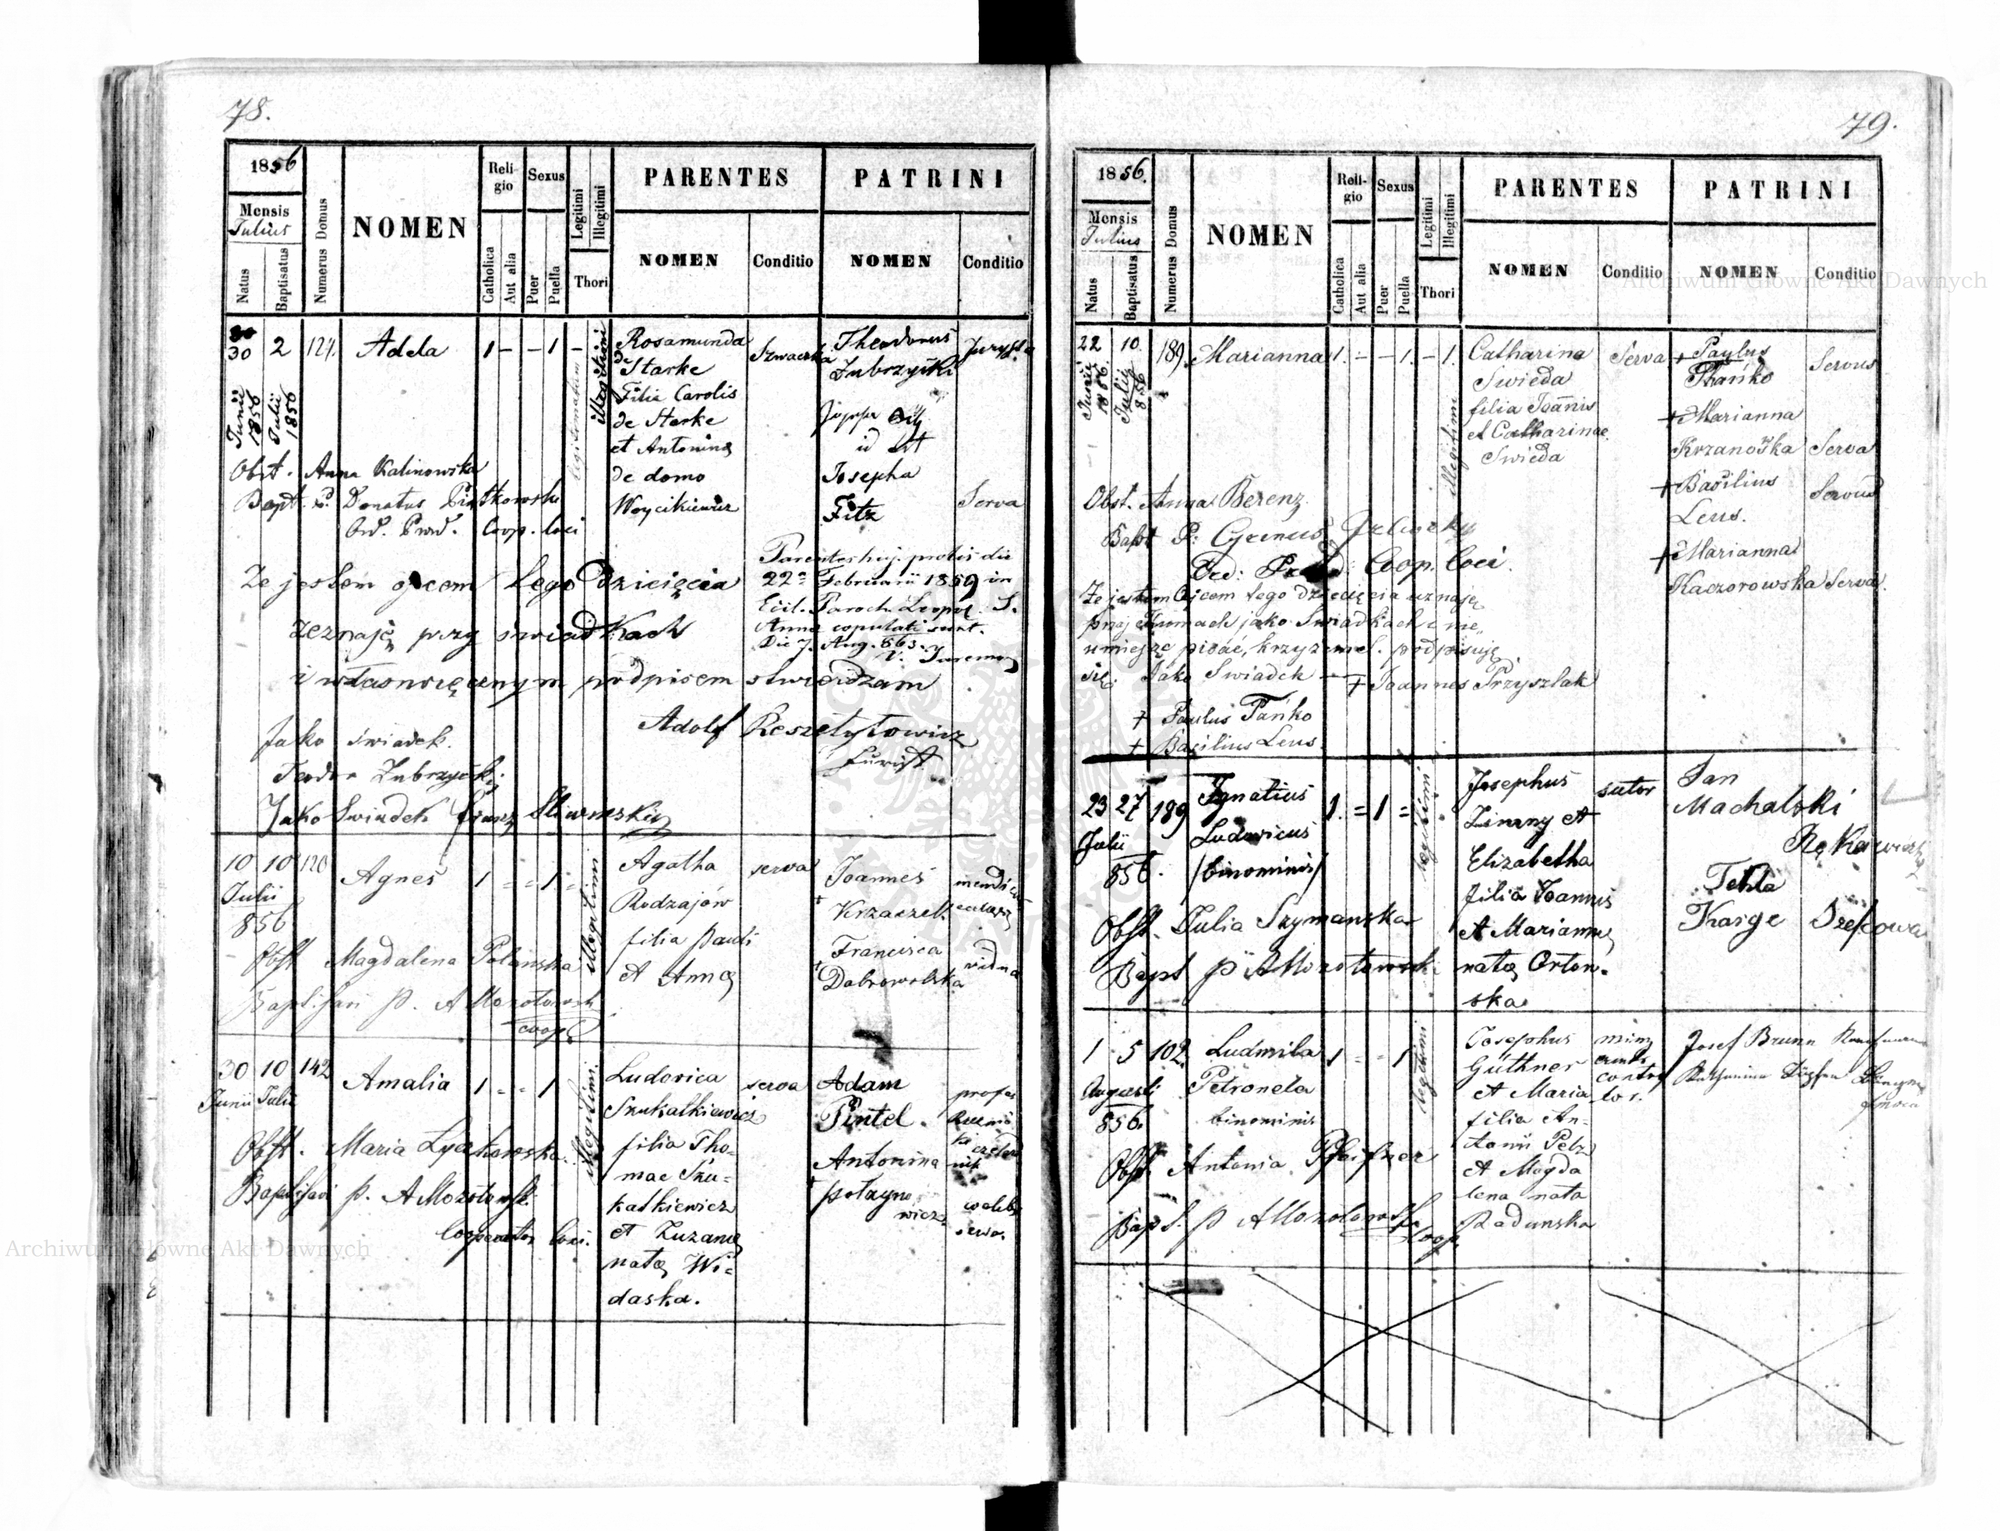 78.
1856
Mensis
Julius
Natus
Baptisatus
Numerus Domus
NOMEN
Religio
Catholica
Aut alia
Sexus
Puer
Puella
Legitimi
Illegitimi
Thori
PARENTES
NOMEN
Conditio
PATRINI
NOMEN
Conditio
30 2 124. Adela 1 - - 1 -
Junii 1856
Julii 1856
illegitimi
Rosamunda
de
Starke
Filia Carolis
de Starke
et Antonina
de domo
Woycikiewicz
Szwaczka
Theodorus
Zubrzycki
Jurysta
id est
Josepha
Fitz
Serva
Obst. Anna Kalinowska
Bapt. P. Donatus Piątkowski
Ord. Praed. Coop. loci
Parentes huj. prolis die
22a Februarii 1859 in
Eccl. Paroch. Leopol. S.
Anna copulati sunt.
Że jestem ojcem tego Dziecięcia
zeznaję przy świadkach
i własnoręcznym podpisem stwierdzam
Adolf Reszetyłowicz
Jurist
Jako świadek.
Teodor Zubrzycki
Jako Świadek
10 10 120 Agnes 1 - - 1 -
Julii
856
illegitimi
Agatha
Rodzajów
filia Pauli
et Anna
serva
Joannes
Krzaczek
Francisca
Dabrowolska
vidua
Obst Magdalena Polanska
Baptisavi P. A Mozołowski
coop
30 10 142 Amalia 1 - - 1
Junii Julii
illegitimi
Ludovica
Szukalkiewicz
filia Tho-
mae Szu-
kalkiewicz
et Zuzanna
nata Wi-
daska.
serva
Adam
Pintel.
Antonina
Połayno
wicz
Obst. Maria Lyczkowska
Baptisavi P. A Mozołowski
Cooperator loci.
79.
1856.
Mensis
Julius
Natus
Baptisatus
Numerus Domus
NOMEN
Religio
Catholica
Aut alia
Sexus
Puer
Puella
Legitimi
Illegitimi
Thori
PARENTES
NOMEN
Conditio
PATRINI
NOMEN
Conditio
22 10. 189. Marianna 1. - - 1. - 1.
Junii 1856.
Julii 856
illegitimi
Catharina
Swieda
filia Joannis
et Catharinae
Swieda
Serva
+ Paulus
Pańko
Servus
+ Marianna
Krzanowska
Serva
+ Basilius
Leus.
Servus
+ Marianna
Kaczorowska Serva.
Obst. Anna Berenz
Bapt P.
Ord: Praed: Coop. loci.
Że jestem Ojcem tego dziecięcia uznaję
przy Kumach jako Świadkach i nie
umiejąc pisać, krzyżem podpisuję
się. Jako Świadek - + Joannes Przyszlak
+ Paulus Pańko
+ Basilius Leus.
23 27 189 Ignatius 1. = 1 =
Julii
856.
Ludovicus
/binominis/
legitimi
Josephus
Zimny et
Elizabetha
filia Joannis
et Marianna
nata Orton-
ska
sutor
Jan
Machalski
Rękawicz
Tekla
Karge
Szefcowa
Obst. Julia Szymanska
Bapt P A Mozołowski
1 5 102 Ludmila 1 = - 1
Augusti
856.
Petronela
binominis
legitimi
Josephus
Güthner
et Maria
filia An-
tonii Pelz
et Magda
lena nata
Radunska
Josef Brunn Kaufmann
Obst. Antonia Pfeifner
Bapt. P A Mozołowski
coop.
Archiwum Główne Akt Dawnych
Archiwum Główne Akt Dawnych